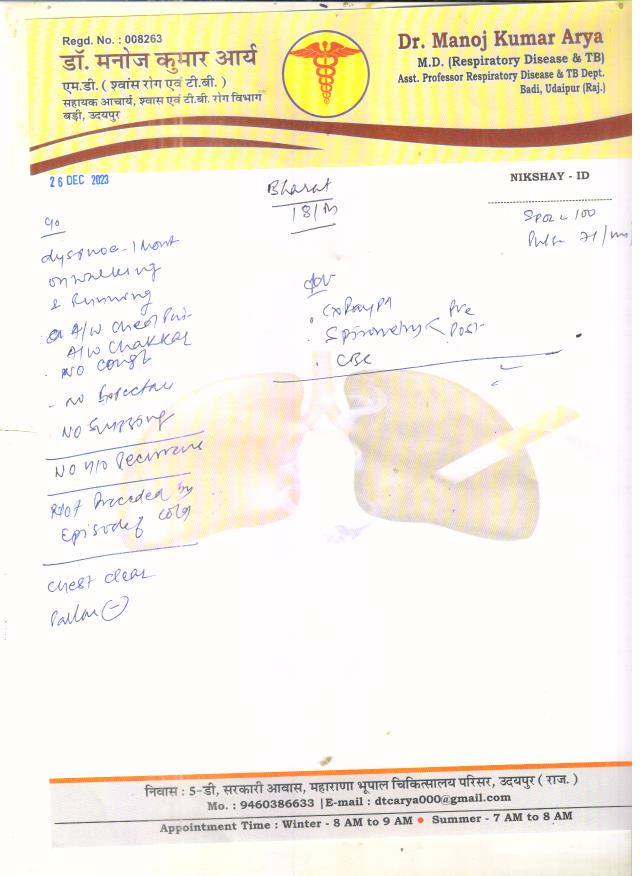 Regd. No. : 008263
डॉ. मनोज कुमार आर्य
एम.डी. ( श्वांस रोग एवं टी.बी. )
सहायक आचार्य, श्वास एवं टी.बी. रोग विभाग
बड़ी, उदयपुर
Dr. Manoj Kumar Arya
M.D. (Respiratory Disease & TB)
Asst. Professor Respiratory Disease & TB Dept.
Badi, Udaipur (Raj.)
26 DEC 2023
NIKSHAY - ID
Bharat
18/M
SPO2 - 100
Pulse 71/min
c/o
dyspnoea - 1 Mont
on walking
& Running
A/W Chest Pain
A/W Chakkar
NO Cough
- NO
NO
NO H/O Recurrence
Not Preceded by
Episode of cold
Chest clear
Pallor (-)
Adv
. CXRay PA
. Spirometry < Pre
Post
. CBC
निवास : 5-डी, सरकारी आवास, महाराणा भूपाल चिकित्सालय परिसर, उदयपुर ( राज. )
Mo. : 9460386633 | E-mail : dtcarya000@gmail.com
Appointment Time : Winter - 8 AM to 9 AM ● Summer - 7 AM to 8 AM